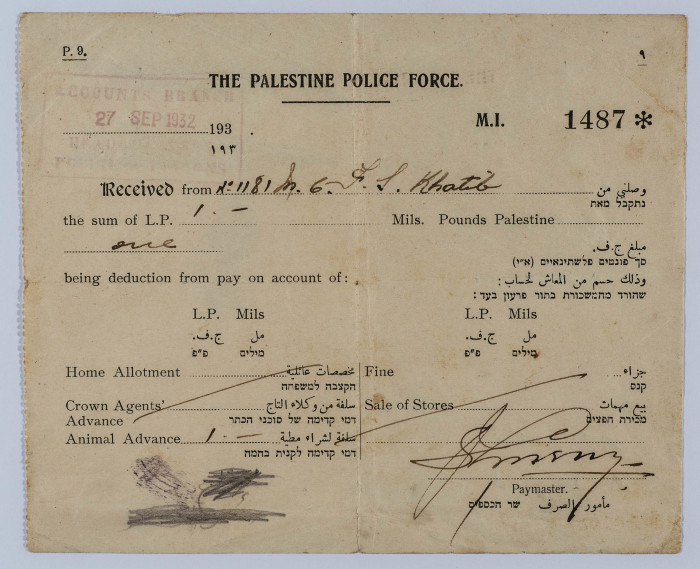 P. 9.
٩
THE PALESTINE POLICE FORCE.
ACCOUNTS BRANCH
27 SEP 1932
193 .
١٩٣
M.I. 1487 *
Received from No 1181 F. S. Khatib وصلني من
נתקבל מאת
the sum of L.P. 1.- Mils. Pounds Palestine
one مبلغ ج.ف.
סך פונטים פלשתינאיים (א״י)
being deduction from pay on account of: وذلك حسم من المعاش لحساب:
שהורד מהמשכורת בתור פרעון בעד:
L.P. Mils L.P. Mils
مل ج.ف. مل ج.ف.
מילים פ״פ מילים פ״פ
Home Allotment مخصصات عائلية Fine جزاء
הקצבה למשפחה קנס
Crown Agents' سلفة من وكلاء التاج Sale of Stores بيع مهمات
Advance דמי קדימה של סוכני הכתר מכירת חפצים
Animal Advance 1.- سلفة لشراء مطية
דמי קדימה לקנית בהמה
Paymaster.
مأمور الصرف שר הכספים